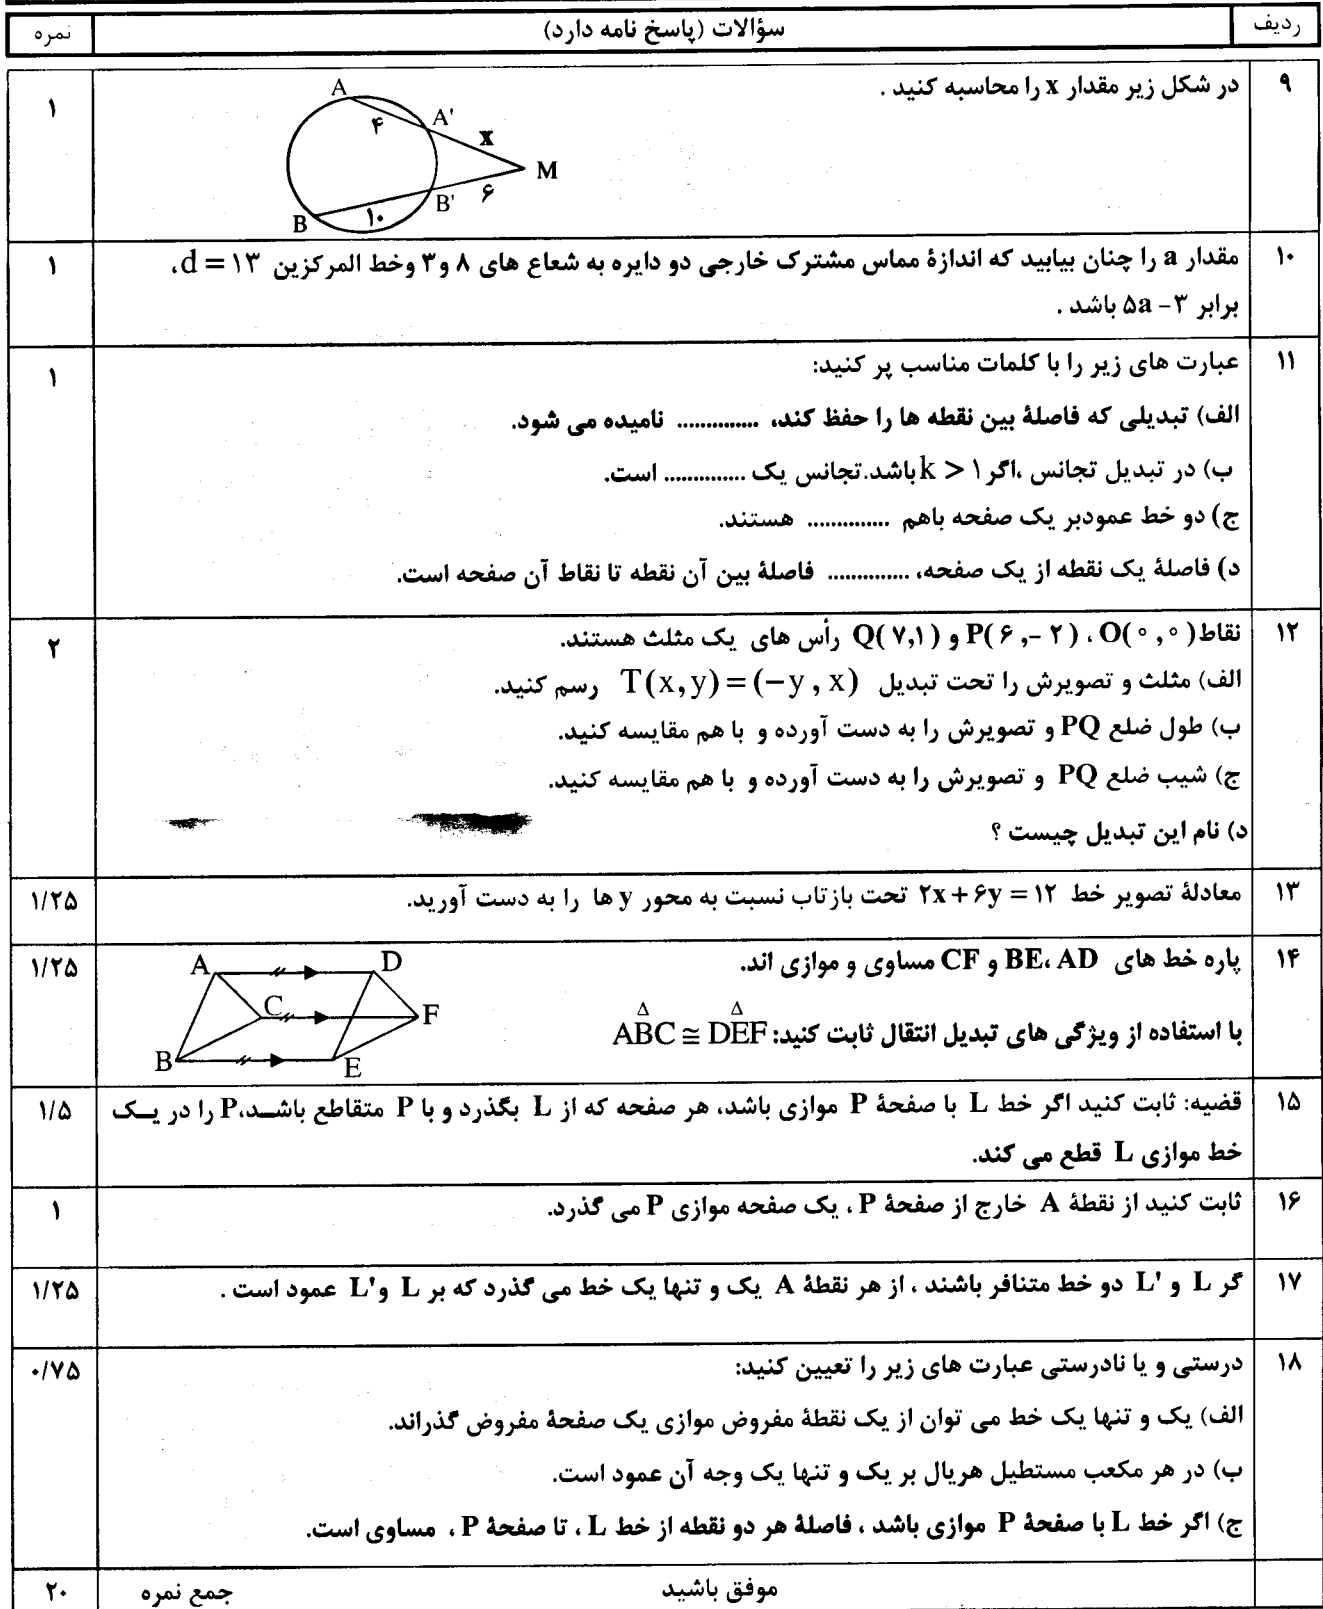 ردیف سؤالات (پاسخ نامه دارد) نمره
۹ در شکل زیر مقدار x را محاسبه کنید . ۱
A
۴ A' x
M
۶ B' ۱۰ B
۱۰ مقدار a را چنان بیابید که اندازهٔ مماس مشترک خارجی دو دایره به شعاع های ۸ و۳ وخط المرکزین d = ۱۳، ۱
برابر ۵a – ۳ باشد .
۱۱ عبارت های زیر را با کلمات مناسب پر کنید: ۱
الف) تبدیلی که فاصلهٔ بین نقطه ها را حفظ کند، .............. نامیده می شود.
ب) در تبدیل تجانس ،اگر k > ۱ باشد.تجانس یک .............. است.
ج) دو خط عمودبر یک صفحه باهم .............. هستند.
د) فاصلهٔ یک نقطه از یک صفحه، .............. فاصلهٔ بین آن نقطه تا نقاط آن صفحه است.
۱۲ نقاط O(۰,۰) ، P(۶,–۲) و Q(۷,۱) رأس های یک مثلث هستند. ۲
الف) مثلث و تصویرش را تحت تبدیل T(x,y) = (–y , x) رسم کنید.
ب) طول ضلع PQ و تصویرش را به دست آورده و با هم مقایسه کنید.
ج) شیب ضلع PQ و تصویرش را به دست آورده و با هم مقایسه کنید.
د) نام این تبدیل چیست ؟
۱۳ معادلهٔ تصویر خط ۲x + ۶y = ۱۲ تحت بازتاب نسبت به محور y ها را به دست آورید. ۱/۲۵
۱۴ پاره خط های BE، AD و CF مساوی و موازی اند. ۱/۲۵
با استفاده از ویژگی های تبدیل انتقال ثابت کنید: ABC ≅ DEF
A D
C F
B E
۱۵ قضیه: ثابت کنید اگر خط L با صفحهٔ P موازی باشد، هر صفحه که از L بگذرد و با P متقاطع باشد،P را در یک ۱/۵
خط موازی L قطع می کند.
۱۶ ثابت کنید از نقطهٔ A خارج از صفحهٔ P ، یک صفحه موازی P می گذرد. ۱
۱۷ گر L و L' دو خط متنافر باشند ، از هر نقطهٔ A یک و تنها یک خط می گذرد که بر L و L' عمود است . ۱/۲۵
۱۸ درستی و یا نادرستی عبارت های زیر را تعیین کنید: ۰/۷۵
الف) یک و تنها یک خط می توان از یک نقطهٔ مفروض موازی یک صفحهٔ مفروض گذراند.
ب) در هر مکعب مستطیل هریال بر یک و تنها یک وجه آن عمود است.
ج) اگر خط L با صفحهٔ P موازی باشد ، فاصلهٔ هر دو نقطه از خط L ، تا صفحهٔ P ، مساوی است.
موفق باشید جمع نمره ۲۰